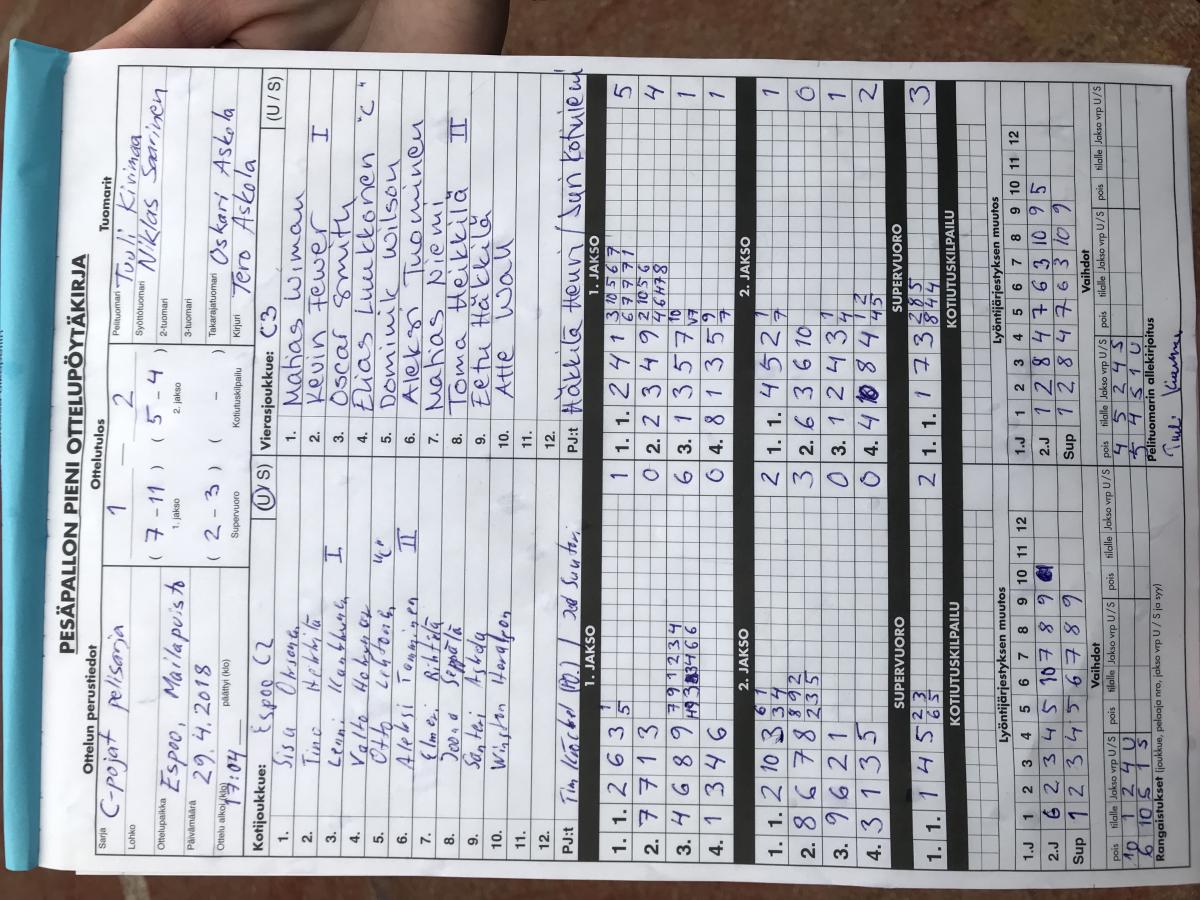 PESÄPALLON PIENI OTTELUPÖYTÄKIRJA
Ottelun perustiedot
Sarja C-pojat pelisarja
Lohko
Ottelupaikka Espoo, Mailapuisto
Päivämäärä 29.4.2018
Ottelu alkoi (klo) 17:04 päättyi (klo)
Ottelutulos
1 — 2
( 7 - 11 ) ( 5 - 4 )
1. jakso 2. jakso
( 2 - 3 ) ( - )
Supervuoro Kotiutuskilpailu
Tuomarit
Pelituomari Tuuli Kivimaa
Syöttötuomari Niklas Saarinen
2-tuomari
3-tuomari
Takarajatuomari Oskari Askola
Kirjuri Tero Askola
Kotijoukkue: Espoo C2 (U/S)
1. Sisu
2. Timo
3. Lenni I
4. Valto
5. Otto Lehtonen "C"
6. Aleksi Tamminen II
7. Elmeri
8. Joona Seppälä
9. Santeri
10.
11.
12.
PJ:t
Vierasjoukkue: C3 (U / S)
1. Mathias Weiman
2. Kevin Fewer I
3. Oscar Smith
4. Elias Luukkonen "C"
5. Dominik Wilson
6. Aleksi Tuominen
7. Mathias Niemi
8. Toma Heikkilä II
9. Eetu Häkkilä
10. Atte Wall
11.
12.
PJ:t Häkkilä Henri /
1. JAKSO
1. 1. 2 6 3 1
5
1
2. 7 7 1 3 0
3. 4 6 8 9 7 9 1 2 3 4
6
4. 1 3 4 6 0
1. JAKSO
1. 1. 2 4 1 3 10 5 6 7
6 7 7 7 7 1
5
2. 2 3 4 9 2 10 5 6
4 6 7 8
4
3. 1 3 5 7 10
1
4. 8 1 3 5 9
7
1
2. JAKSO
1. 1. 2 10 3 6 1
3 4
2
2. 8 6 7 8 8 9 2
2 3 5
3
3. 9 6 2 1 0
4. 3 1 3 5 0
2. JAKSO
1. 1. 4 5 2 1
7
1
2. 6 3 6 10 0
3. 1 2 4 3 1
4
1
4. 4 8 4 1 2
4 5
2
SUPERVUORO
1. 1. 1 4 5 2 3
6 5
2
SUPERVUORO
1. 1. 1 7 3 2 8 5
8 4 4
3
KOTIUTUSKILPAILU
KOTIUTUSKILPAILU
Lyöntijärjestyksen muutos
1.J 1 2 3 4 5 6 7 8 9 10 11 12
2.J 6 2 3 4 5 10 7 8 9
Sup 1 2 3 4 5 6 7 8 9
Lyöntijärjestyksen muutos
1.J 1 2 3 4 5 6 7 8 9 10 11 12
2.J 1 2 8 4 7 6 3 10 9 5
Sup 1 2 8 4 7 6 3 10 9
Vaihdot
pois tilalle Jakso vrp U/S pois tilalle Jakso vrp U/S pois tilalle Jakso vrp U/S
10 1 2 4 U
6 10 5 1 S
Vaihdot
pois tilalle Jakso vrp U/S pois tilalle Jakso vrp U/S pois tilalle Jakso vrp U/S
4 5 2 4 S
5 4 S 1 U
Rangaistukset (joukkue, pelaaja nro, jakso vrp U / S ja syy)
Pelituomarin allekirjoitus
Tuuli Kivimaa